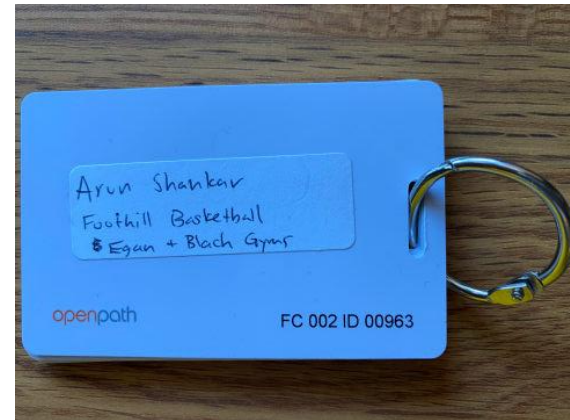 Arun Shankar
Foothill Basketball
Egan + Blach Gyms
openpath
FC 002 ID 00963